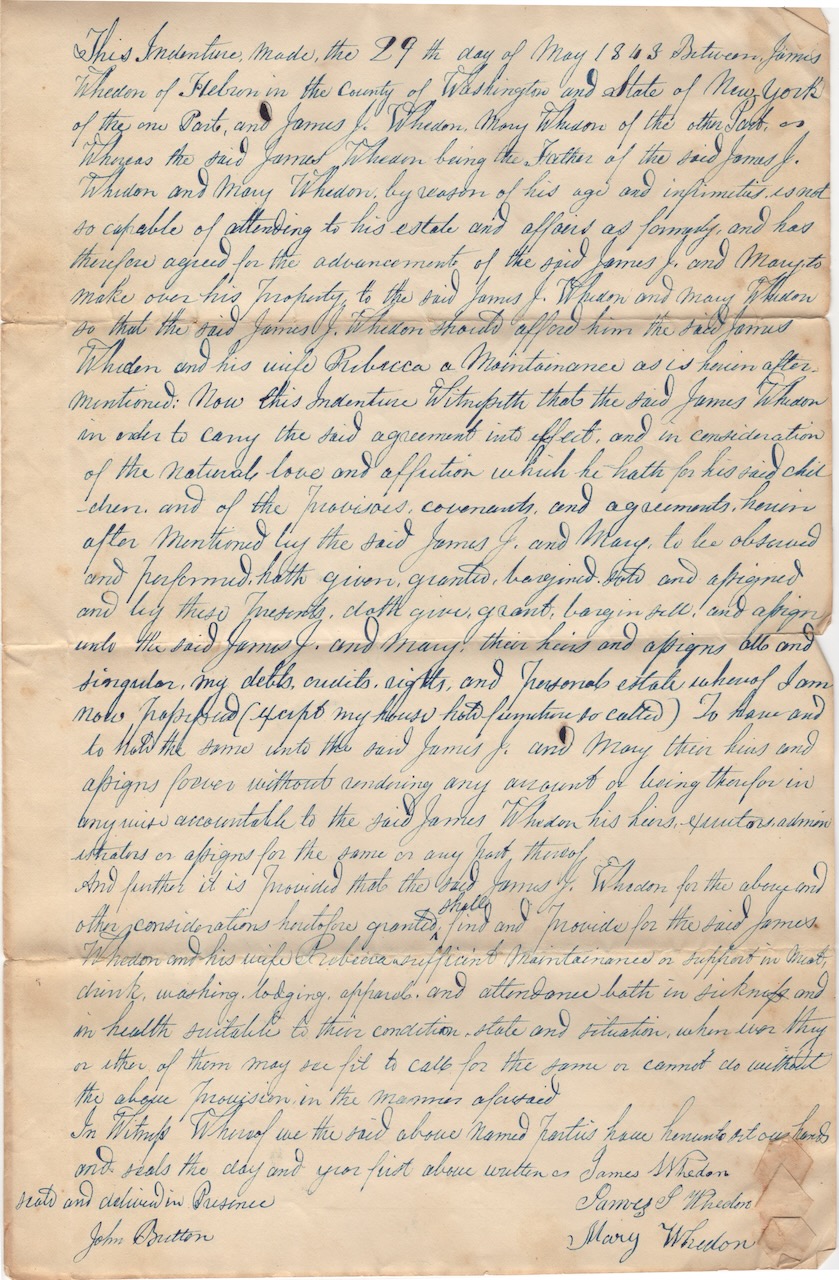 This Indenture, made, the 29th day of May 1843 Between, James
Whedon of Hebron in the County of Washington and State of New-York
of the one Part, and James J. Whedon, Mary Whedon of the other Part,
Whereas the said James Whedon being the Father of the said James J.
Whedon and Mary Whedon, by reason of his age and infirmities, is not
so capable of attending to his estate and affairs as formerly, and has
therefore agreed for the advancement, of the said James J. and Mary, to
make over his Property, to the said James J. Whedon and Mary Whedon
so that the said James J. Whedon should afford him the said James
Whedon and his wife Rebecca a Maintainance as is herein after-
mentioned: Now this Indenture Witnesseth that the said James Whedon
in order to carry the said agreement into effect, and in consideration
of the natural love and affection which he hath for his said chil
-dren, and of the Provisoes, covenants, and agreements, herein
after Mentioned by the said James J. and Mary, to be observed
and Performed, hath given, granted, bargined, sold and assigned
and by these Presents, doth give, grant, bargin sell, and assign
unto the said James J. and Mary, their heirs and assigns all and
singular, my debts, credits, rights, and Personal estate whereof I am
now Possessed (except my house hold furniture so called) To have and
to hold the same unto the said James J. and Mary their heirs and
assigns forever without rendering any account or being therefor in
any wise accountable to the said James Whedon his heirs, executors, admin
istrators or assigns for the same or any Part thereof
And further it is Provided that the said James J. Whedon for the above and
other considerations heretofore granted, shall find and Provide for the said James
Whedon and his wife Rebecca sufficient Maintainance or support in Meat,
drink, washing, lodging, apparel, and attendance both in sickness and
in health suitable to their condition, state and situation, when ever they
or either of them may see fit to call for the same or cannot do without
the above Provision in the manner aforesaid
In Witness Whereof we the said above Named Parties have hereunto set our hands
and seals the day and year first above written James Whedon
seald and delived in Presence James J Whedon
John Button Mary Whedon